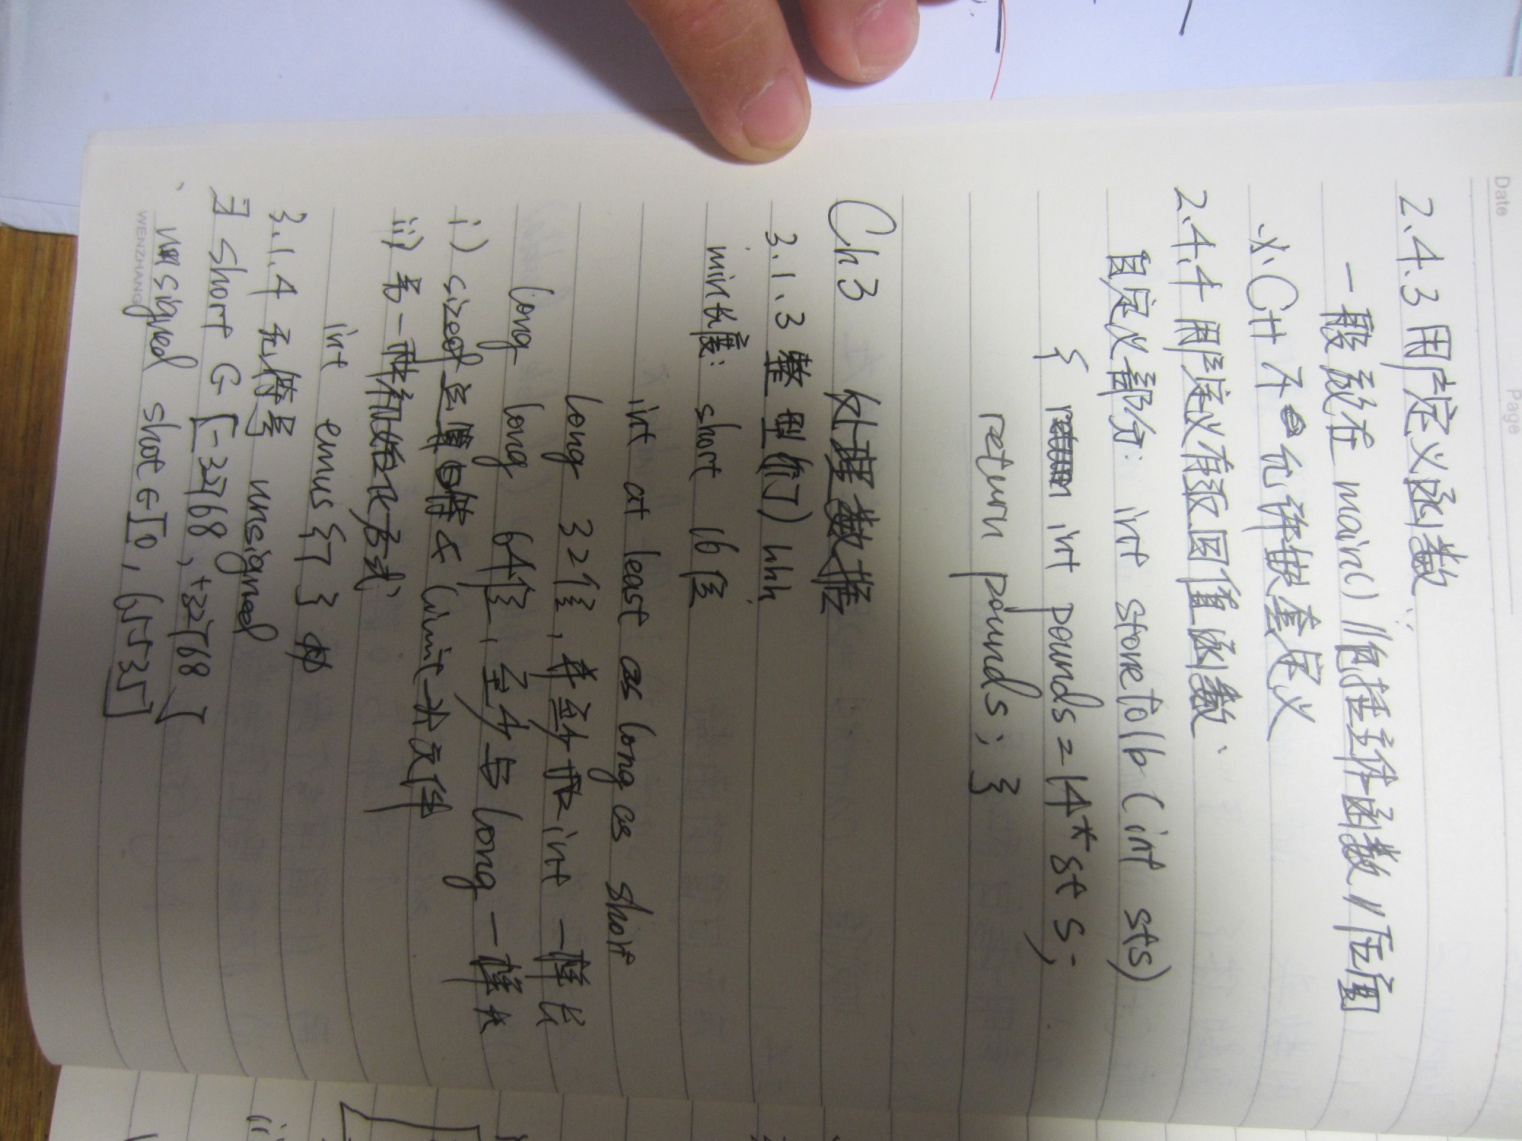 Date
Page
2.4.3 用户定义函数:
一般放在 main() //包括主体函数//后面
※C++不允许嵌套定义
2.4.4 用户定义有返回值函数:
自定义部分: int stonetolb (int sts)
{ int pounds = 14*sts;
return pounds; }
Ch3 处理数据
3.1.3 整型(们) hhh
min长度: short 16位
int at least as long as short
long 32位, 并至少跟 int 一样长
long long 64位, 至少与 long 一样长
i) sizeof & climit 头文件
ii) 另一种初始化方式
int emus {7}
3.1.4 无符号 unsigned
∃ short ∈ [-32768, +32768]
unsigned shot ∈ [0, 65535]
WENZHANG